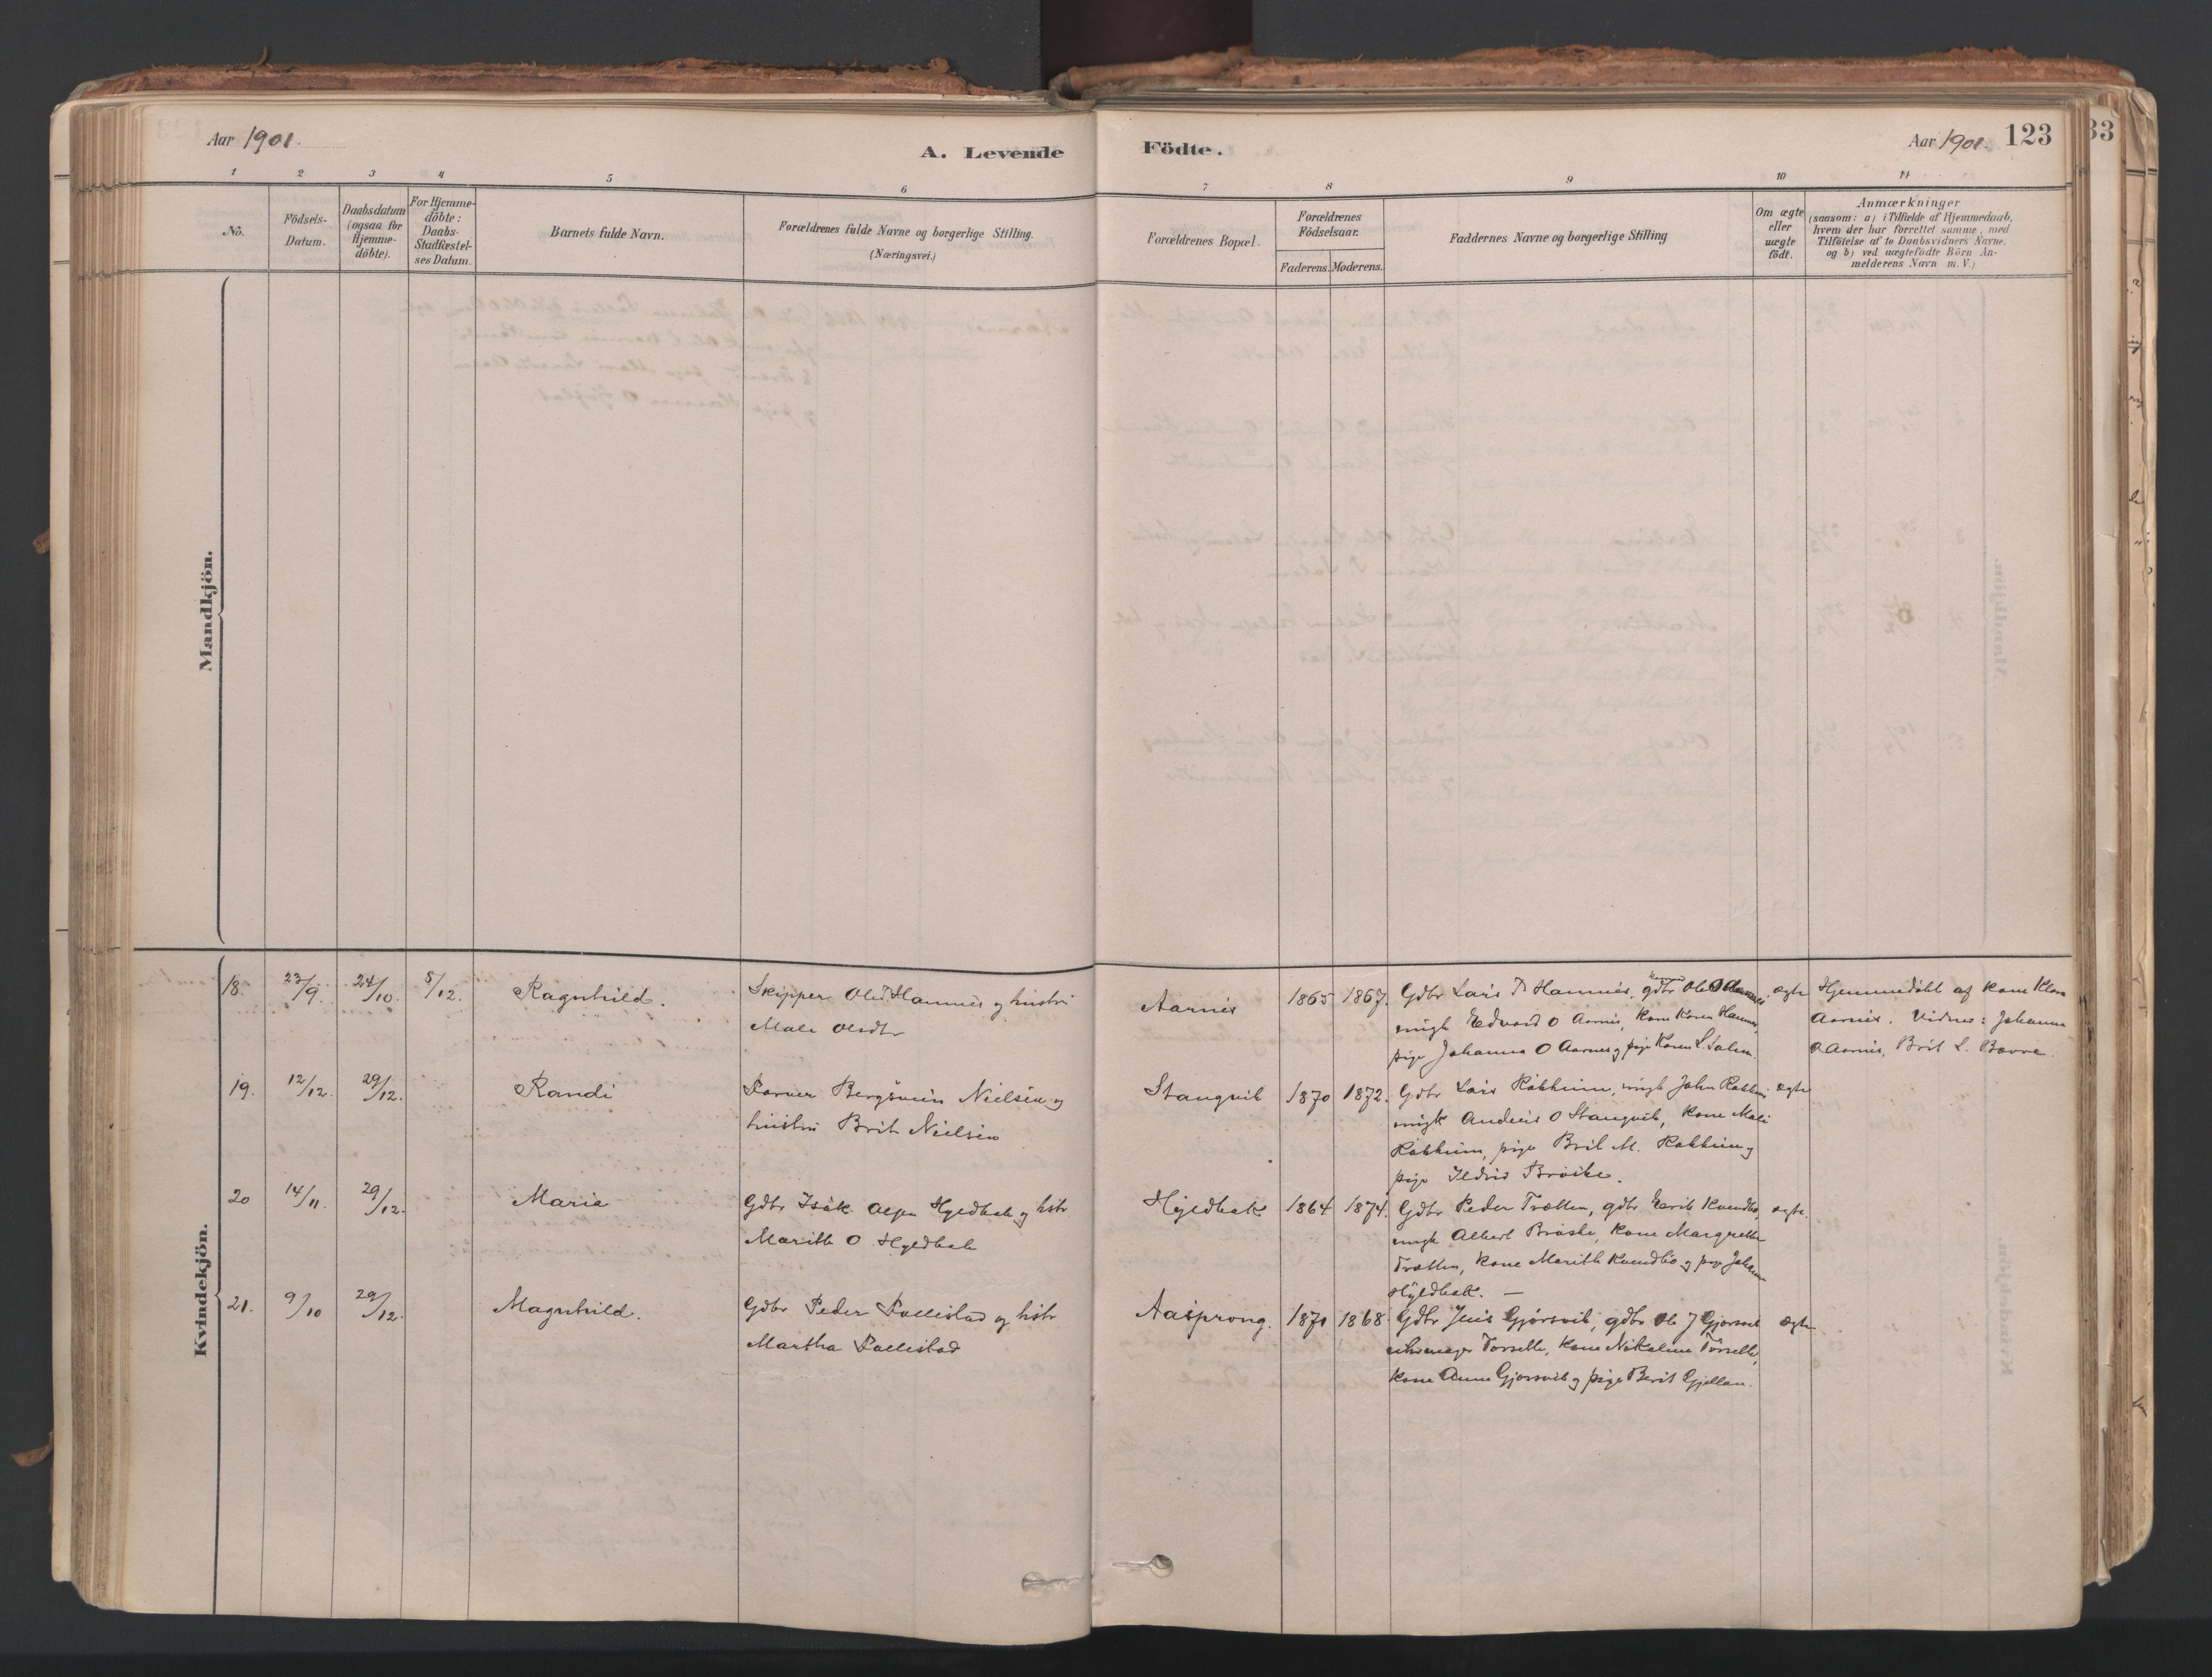 Aar 1901.
A. Levende Födte.
Aar 1901. 123
33
1 2 3 4 5 6 7 8 9 10 11
No.
Födsels-Datum.
Daabsdatum (ogsaa for Hjemme-döbte).
For Hjemme-döbte: Daabs-Stadfæstel-ses Datum.
Barnets fulde Navn.
Forældrenes fulde Navne og borgerlige Stilling. (Næringsvei.)
Forældrenes Bopæl.
Forældrenes Födselsaar.
Faderens. Moderens.
Faddernes Navne og borgerlige Stilling
Om ægte eller uægte födt.
Anmærkninger
(saasom: a) i Tilfælde af Hjemmedaab,
hvem der har forrettet samme, med
Tilföielse af to Daabsvidners Navne,
og b) ved uægtefödte Börn An-
melderens Navn m.V.)
Mandkjön.
Kvindekjön.
18. 23/9. 24/10. 8/12. Ragnhild.
Skipper Ole Hamnes og hustru
Male Olsdtr
Aarnes 1865 1867.
Gdbr Lars Hamnes, gdbr Ole O
ungk Edvard O Aarnes, kone Karen Hamnes,
pige Johanna O Aarnes og pige Karen L. Talen.
ægte
Hjemmedöbt af kone Klara
Aarnes. Vidner: Johanna
O Aarnes, Brit L. Bævre.
19. 12/12. 29/12. Randi
Farver Bergsvein Nielsen og
hustru Brit Nielsen
Stangvik 1870 1872.
Gdbr Lars Kåkheim, ungk John
ungk Anders O Stangvik, kone Mali
pige Brit M. og
pige Ildrid Bröske.
ægte
20 14/11. 29/12. Marie
Gdbr Isak Olsen Hyldbak og hstr
Marith O Hyldbak
Hyldbak 1864 1874.
Gdbr Peder Trætten, gdbr Erik Kvendbö,
ungk Albert Bröske, kone Margrethe
Trætten, kone Marith Kvendbö og pige Johanna
Hyldbak. —
ægte.
21. 9/10 29/12. Magnhild.
Gdbr Peder Pollestad og hstr
Martha Pollestad
Aasprong. 1870 1868
Gdbr Jens Gjörsvik, gdbr Ole J Gjörsvik
Torsethe, kone Nikoline Torsethe,
kone Anne Gjörsvik og pige Berit Gjellan.
ægte